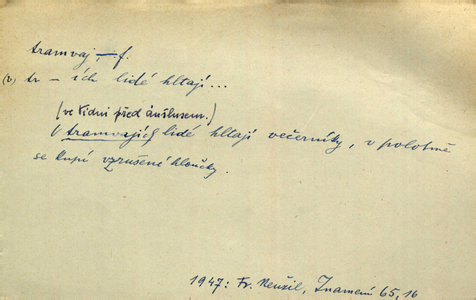 tramvaj, –, f.
(v) tr – ích lidé hltají...
(ve Vídni před anšlusem.)
V tramvajích lidé hltají večerníky, v polotmě
se kupí vzrušené hloučky.
1947: Fr. Neužil, Znamení 65, 16